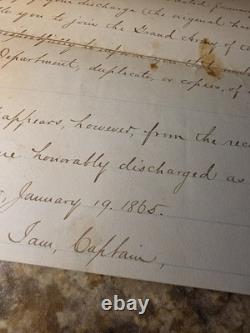 your discharge (the original ha
you to join the Grand Army of
respectfully to inform you that
Department, duplicate, or copies, of
appears, however, from the rec
re honorably discharged as
January 19. 1865.
I am, Captain,
ebay